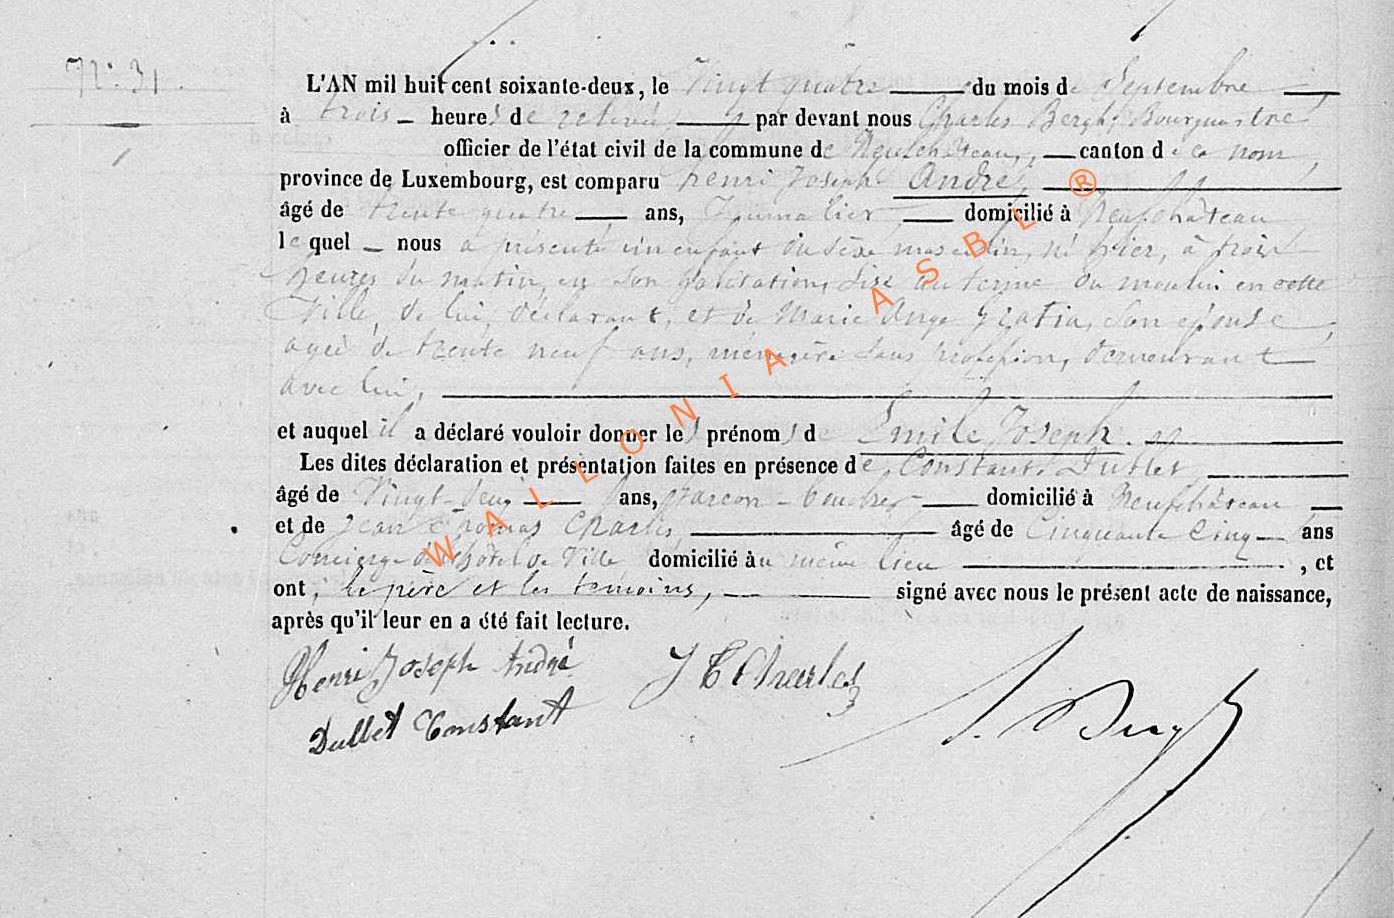 N° 31.
L'AN mil huit cent soixante-deux, le Vingt quatre du mois de Septembre
à trois heures de relevée, par devant nous Charles Bergh, Bourgmestre
officier de l'état civil de la commune de Neufchâteau, canton de ce nom,
province de Luxembourg, est comparu Henri Joseph André,
âgé de trente quatre ans, Journalier, domicilié à Neufchâteau
lequel nous a présenté un enfant du sexe masculin, né hier, à trois
heures du matin, en son habitation, sise au terme du moulin en cette
Ville, de lui, déclarant, et de Marie Ange Gratia, son épouse,
agée de trente neuf ans, ménagère sans profession, demeurant
avec lui,
et auquel il a déclaré vouloir donner les prénoms de Emile Joseph.
Les dites déclaration et présentation faites en présence de Constant Dullet,
âgé de Vingt-deux ans, garçon-boucher domicilié à Neufchâteau
et de Jean Thomas Charles, âgé de Cinquante Cinq ans
Concierge de l'hôtel de Ville domicilié au même lieu, et
ont, le père et les témoins, signé avec nous le présent acte de naissance,
après qu'il leur en a été fait lecture.
Henri Joseph André J T Charles
Dullet Constant
WALLONIA ASBL ®